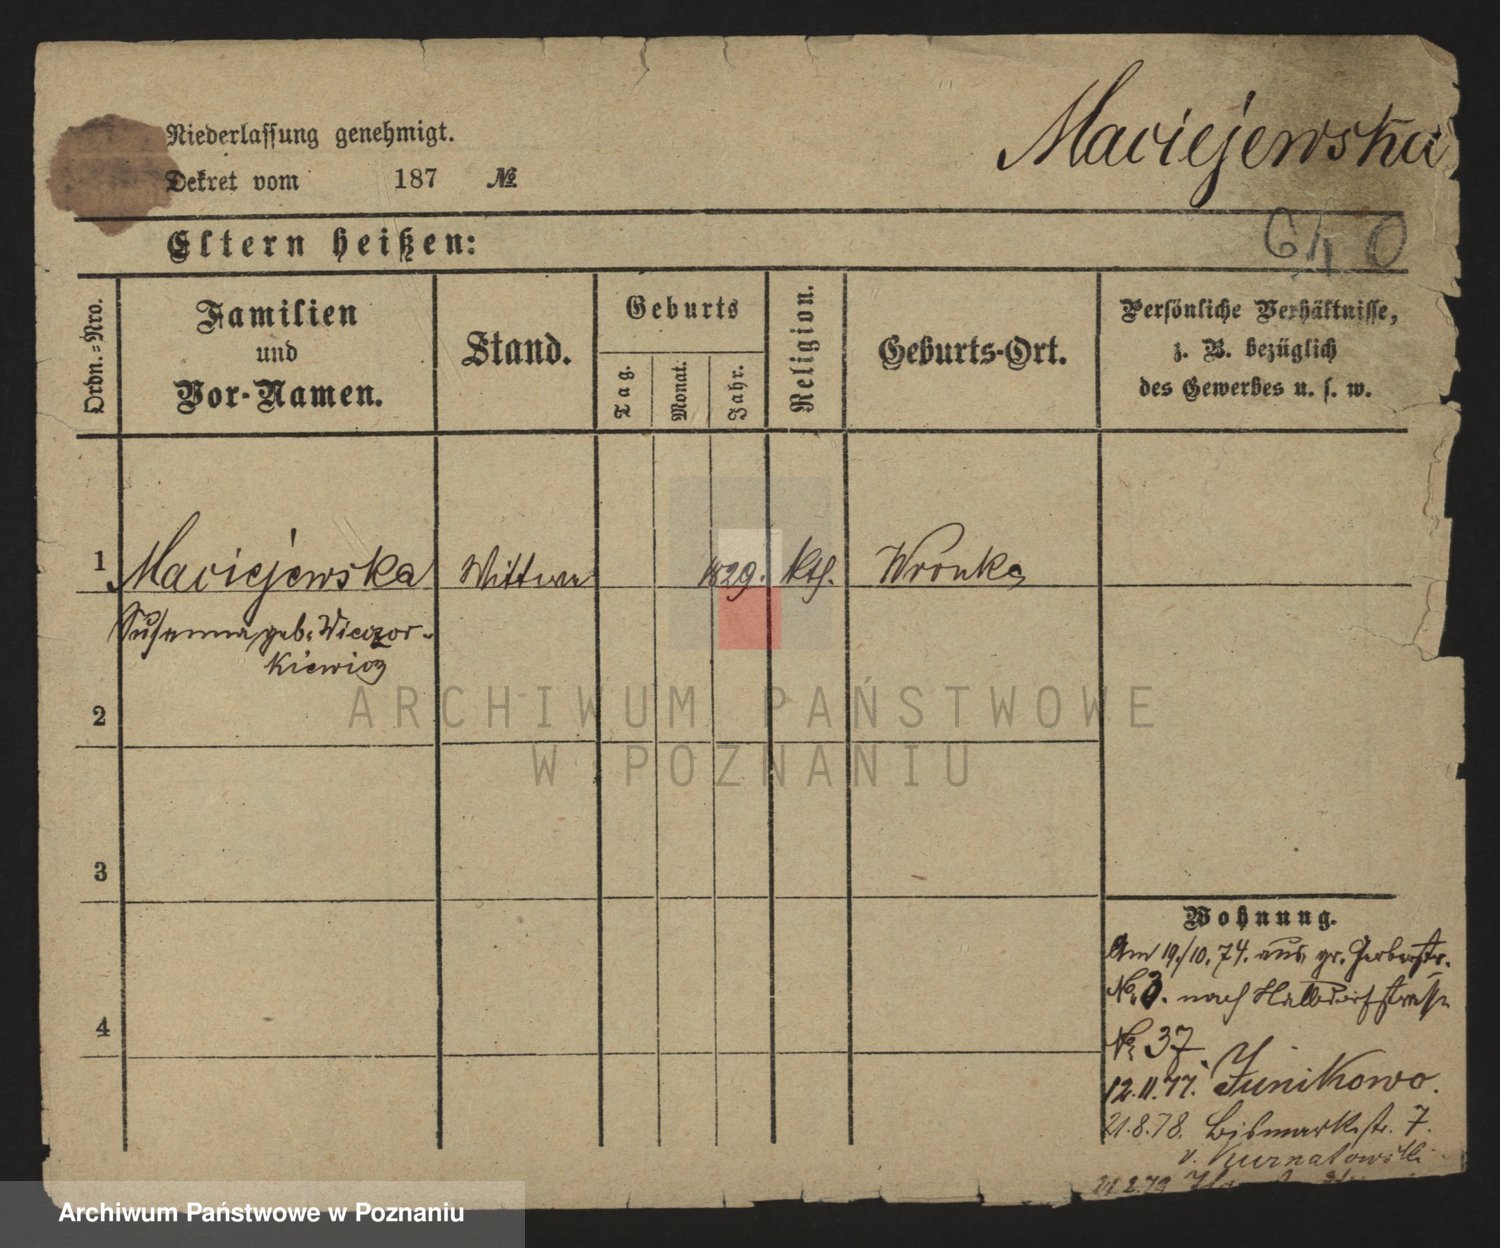 Maciejewska
Niederlassung genehmigt.
Dekret vom 187 №
640
Eltern heißen:
Ordn.-Nro.
Familien
und
Vor-Namen.
Stand.
Geburts
Tag.
Monat.
Jahr.
Religion.
Geburts-Ort.
Persönliche Verhältnisse,
z. B. bezüglich
des Gewerbes u. s. w.
1 Maciejewska Wittwe 1829. kth. Wronke
Susanna geb. Wieczor-
kiewicz
2
3
4
Wohnung.
Am 19./10. 74. aus gr. Gerberstr.
No 3. nach Halbdorfstrasse
No 37.
12.11.77. Junikowo.
21.8.78. Bismarkstr. 7.
v. Kurnatowski
21.2.79
ARCHIWUM PAŃSTWOWE
W POZNANIU
Archiwum Państwowe w Poznaniu